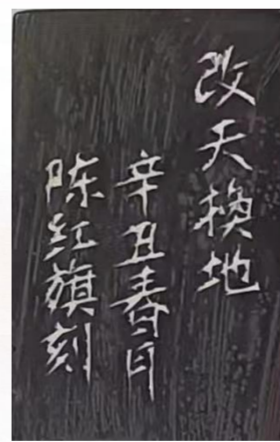 改天换地
辛丑春日
陈红旗刻